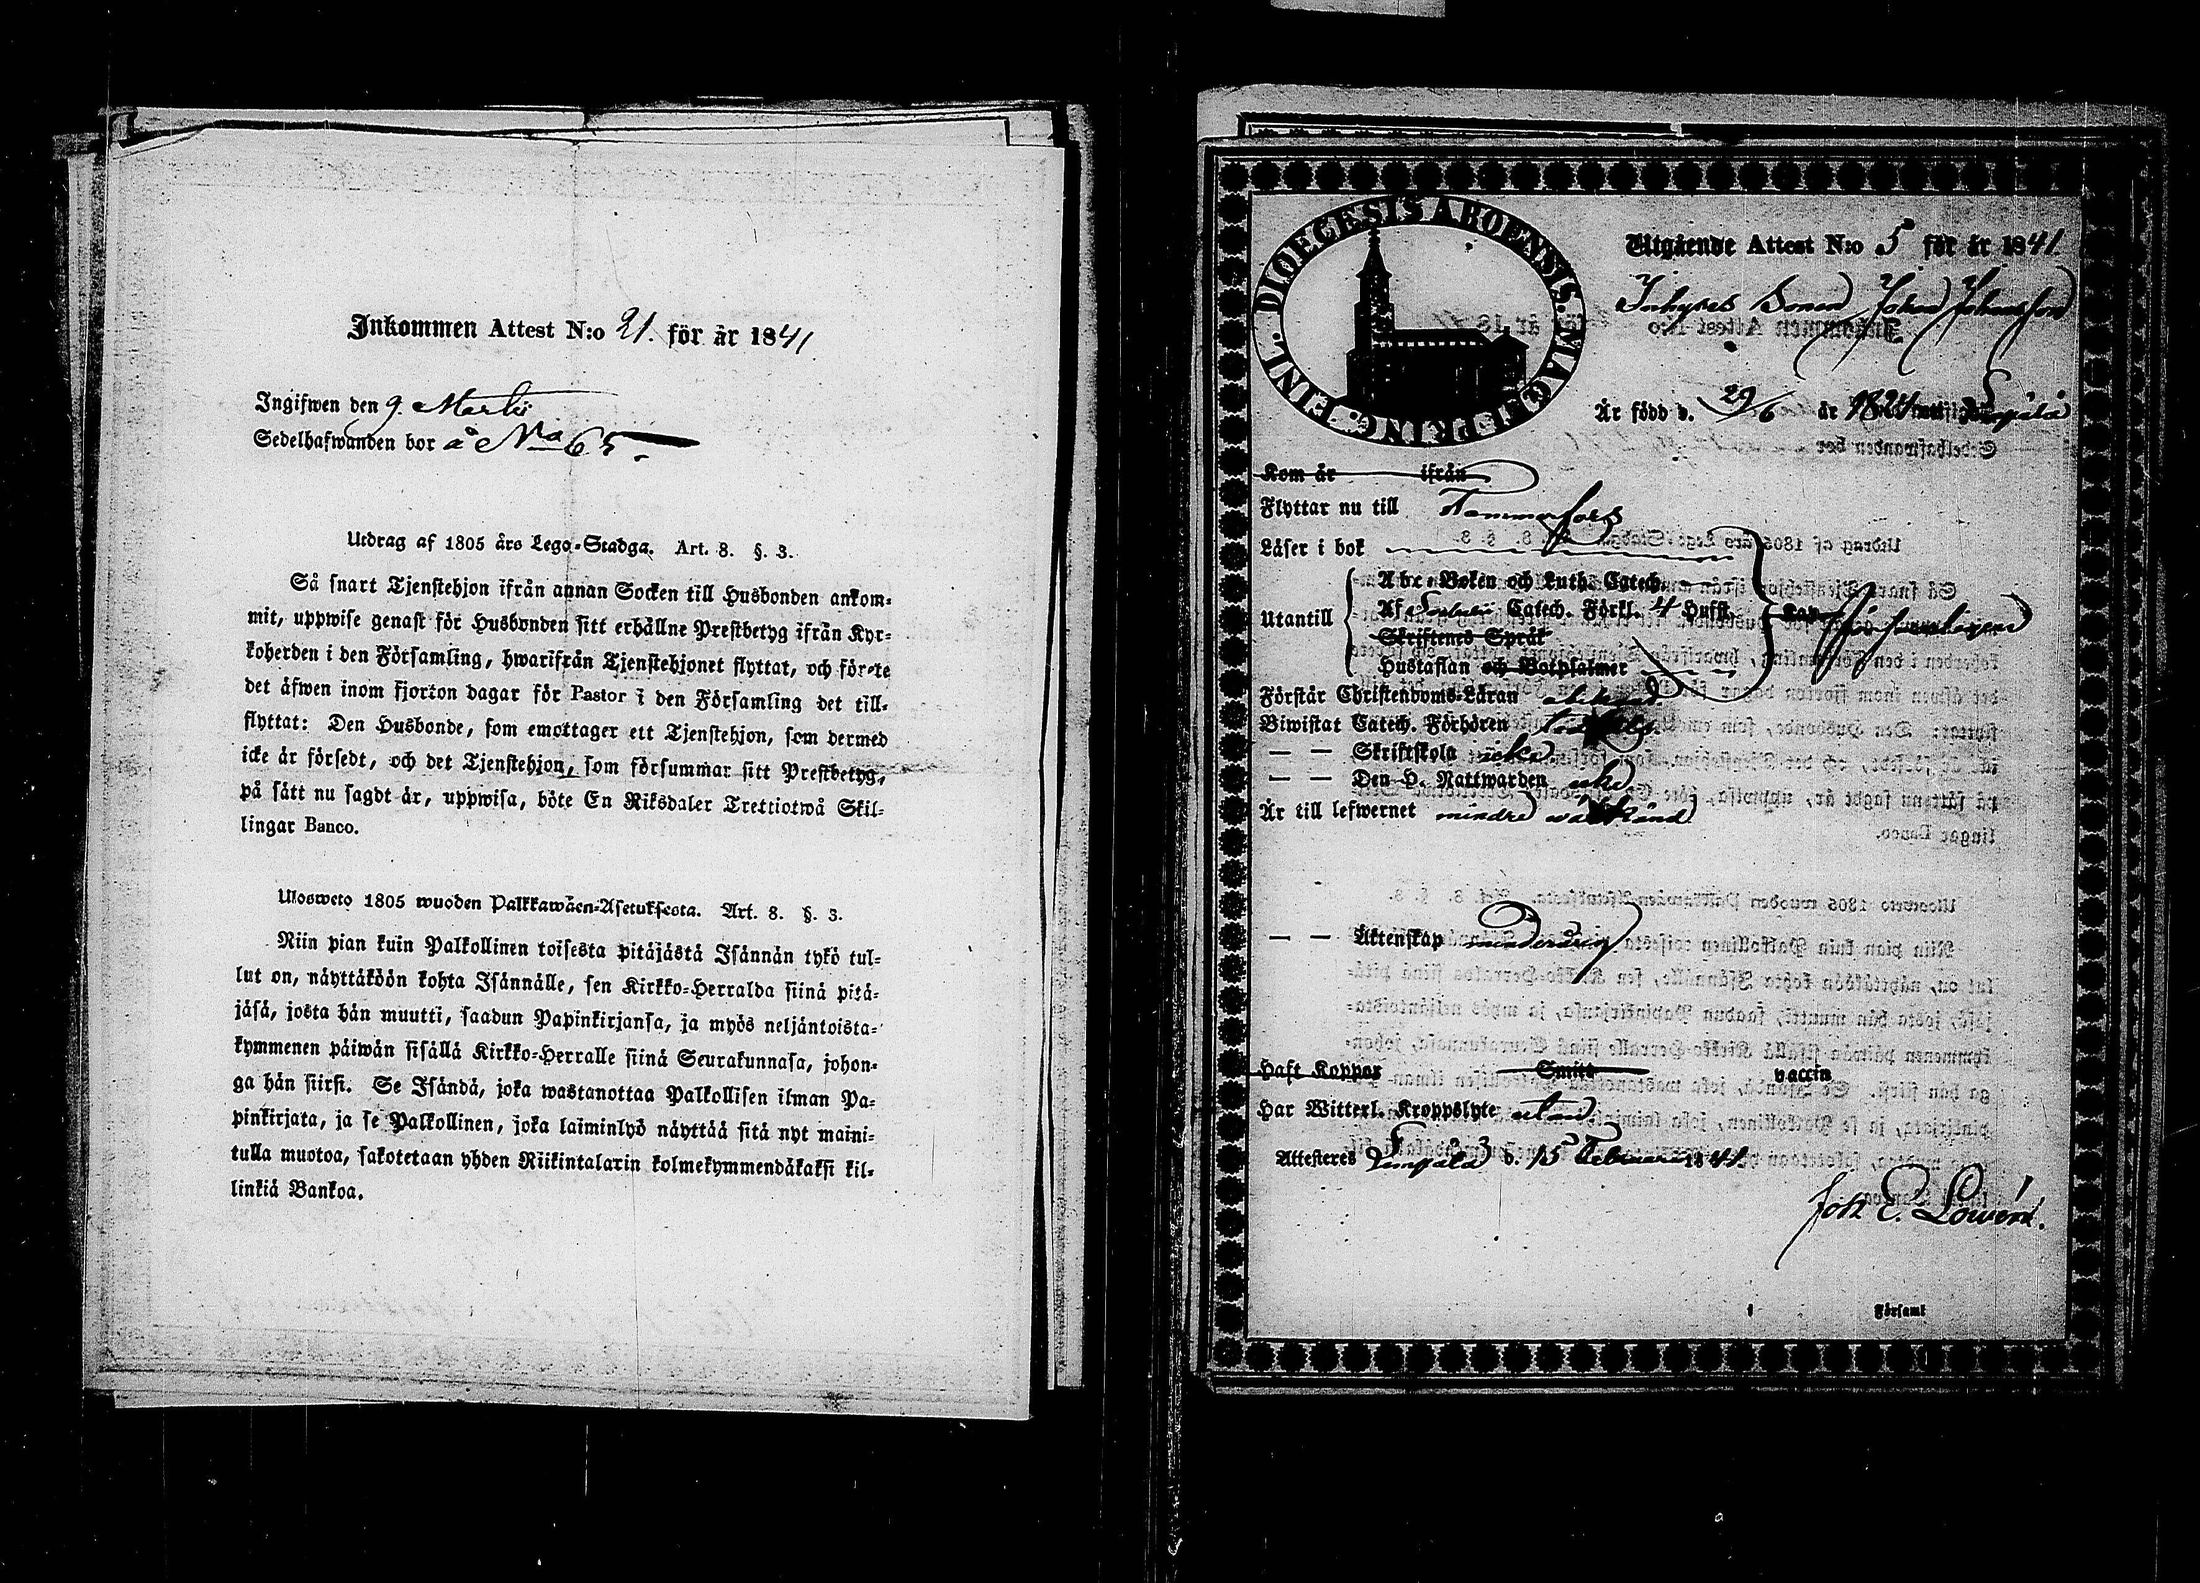 Inkommen Attest N:o 21. för år 1841
Ingifwen den 9. Martii
Sedelhafwanden bor å No 65.
Utdrag af 1805 års Lego-Stadga. Art. 8. §. 3.
Så snart Tjenstehjon ifrån annan Socken till Husbonden ankom-
mit, uppwise genast för Husbonden sitt erhållne Prestbetyg ifrån Kyr-
koherden i den Församling, hwarifrån Tjenstehjonet flyttat, och förete
det äfwen inom fjorton dagar för Pastor i den Församling det till-
flyttat: Den Husbonde, som emottager ett Tjenstehjon, som dermed
icke är försedt, och det Tjenstehjon, som försummar sitt Prestbetyg,
på sätt nu sagdt är, uppwisa, böte En Riksdaler Trettiotwå Skil-
lingar Banco.
Ulosweto 1805 wuoden Palkkawäen-Asetuksesta. Art. 8. §. 3.
Niin pian kuin Palkollinen toisesta pitäjästä Isännän tykö tul-
lut on, näyttäköön kohta Isännälle, sen Kirkko-Herralda siinä pitä-
jäsä, josta hän muutti, saadun Papinkirjansa, ja myös neljäntoista-
kymmenen päiwän sisällä Kirkko-Herralle siinä Seurakunnasa, johon-
ga hän siirsi. Se Isändä, joka wastanottaa Palkollisen ilman Pa-
pinkirjata, ja se Palkollinen, joka laiminlyö näyttää sitä nyt maini-
tulla muotoa, sakotetaan yhden Riikintalarin kolmekymmendäkaksi kil-
linkiä Bankoa.
DIOECESIS ABOENSIS. MAGN. PRINC. FINL.
Utgående Attest N:o 5 för år 1841.
Inhyses Sonen Johan Johansson
Är född d. 29/6 år 1824 Lempälä
Kom år ifrån
Flyttar nu till Tammerfors
Läser i bok
Utantill
Abc-Boken och Luth. Catech.
Af Catech. Förkl. 4 Hufst.
Skriftenes Språk
Hustaflan och Botpsalmer
Kap
försvarligen
Förstår Christendoms-Läran
Biwistat Catech. Förhören
— — Skriftskola icke
— — Den H. Nattwarden icke
Är till lefwernet mindre wälkänd
— — Äktenskap minderårig
Haft Koppor Smitt vaccin
Har Witterl. Kroppslyte utan
Attesteres Lempälä d. 15 Februari 1841.
Joh E. Lowén.
i Församl